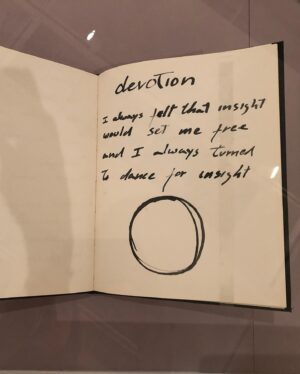 devotion
I always felt that insight
would set me free
and I always turned
to dance for insight